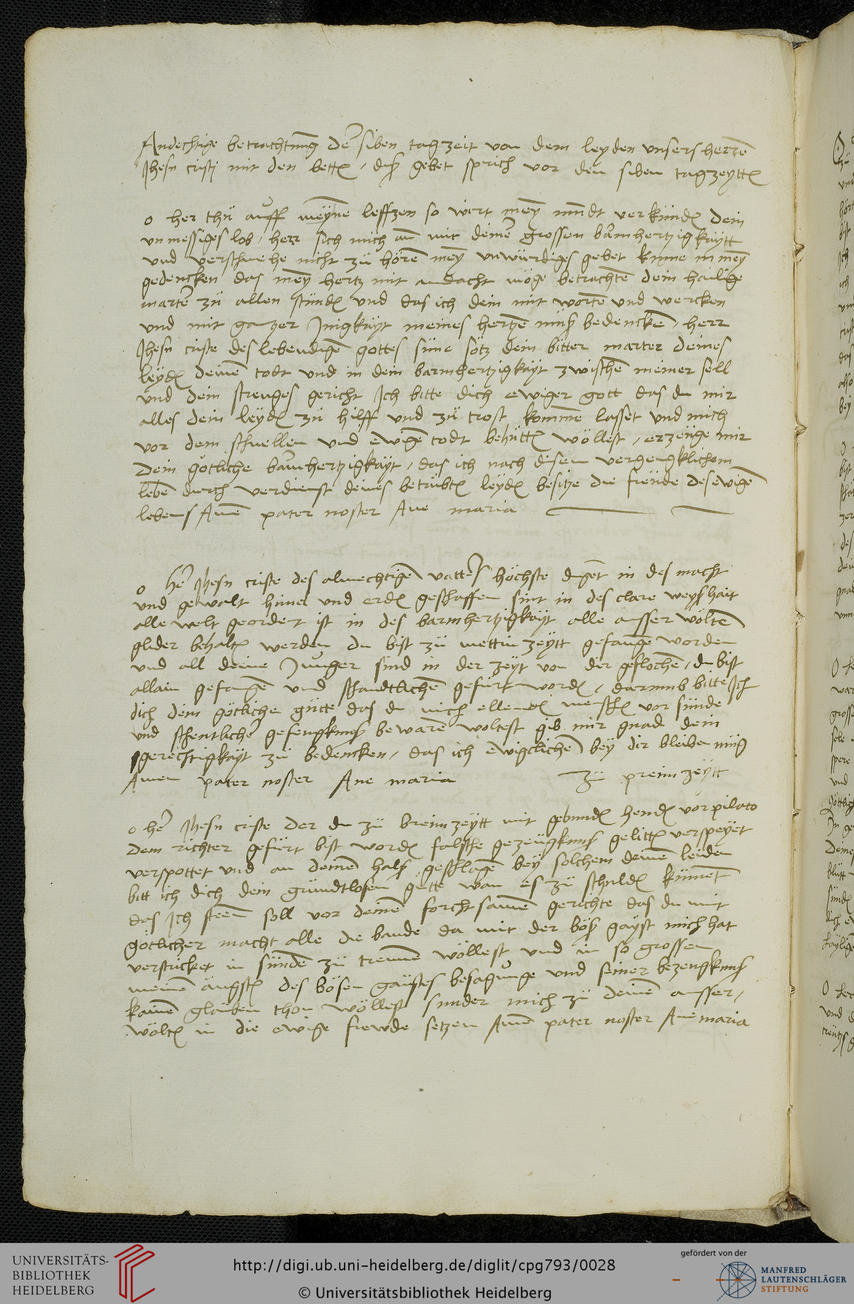 Andechtige betrachtung der siben tagzeit von dem leyden unsers herren
Jhesu cristi mit den bette, diß gebet sprich vor den siben tagzeytten
o her thu auff meyne leffzen so wirt mein mundt verkunden dein
unmessiges lob, herr sich mich an mit deiner grossen barmhertzigkaytt
und verschmehe nicht zu hören mein unwürdiges gebet kume in mein
gedencken das mein hertz mit andacht möge betrachten dein hailige
marter zu allen stunden und das ich dein mit worten und wercken
und mit gantzer Jnigkayt meines hertzen muß bedencken herr
Jhesu criste des lebendigen gottes sune setz dein bitter marter deines
leyden deinen todt und in dein barmhertzigkayt zwischen meiner sell
und dem strenges gericht Jch bitte dich ewiger gott das du mir
alles dein leyden zu hilff und zu trost komme lasset und mich
vor dem schnellen und ewigen todt behütten wöllest, erzeuge mir
Dein götliche barmhertzigkayt, das ich nach disem vergengklichem
leben durch verdienst deines betrubten leyden besitze die freude des ewigen
lebens Amen pater noster Ave maria
o her Jhesu criste des almechtigen vatters höchste in des macht
und gewalt himel und erden geschaffen sint in des clare weyßhait
alle welt geordent ist in des barmhertzigkayt alle ausserwölten
glider behalten werden du bist zu mettin zeytt gefange worden
und all deine Junger sind in der zeyt von dir geflochen, du bist
allain gefangen und schandtlichen gefurt worden, darumb bitte Jch
dich dein götliche gütte das du mich ellenden menschen vor sunde
und schentlicher gefengknuß bewaren wöltest gib mir gnad dein
gerechtigkayt zu bedencken, das ich ewigclichen bey dir bleiben müg
Amen pater noster Ave maria zu preim zeytt
o her Jhesu criste der du zu breim zeytt mit gebunden henden vor pilato
dem richter gefurt bist worden falsche gezeugknuß gelitten verspeyet
verspottet und an deinen halß geschlagen bey solchem deinen leiden
bitt ich dich dein grundtlosen gutte wan es zu schulden kumet
das Jch steen soll vor deinem forchtsamen gerichte das du mit
götlicher macht alle die bande da mit der böß gayst mich hat
verstricket in sunden zu trennen wöllest und in so grossen
meinen ängsten des bösen gaystes besagunge und seiner bezeugknuß
kainen glauben thon wöllest sunder mich zu deinen ausser,
wölten in die ewige frewde setzen Amen pater noster Ave maria
UNIVERSITÄTS-
BIBLIOTHEK
HEIDELBERG
http://digi.ub.uni-heidelberg.de/diglit/cpg793/0028
© Universitätsbibliothek Heidelberg
gefördert von der
MANFRED
LAUTENSCHLÄGER
STIFTUNG